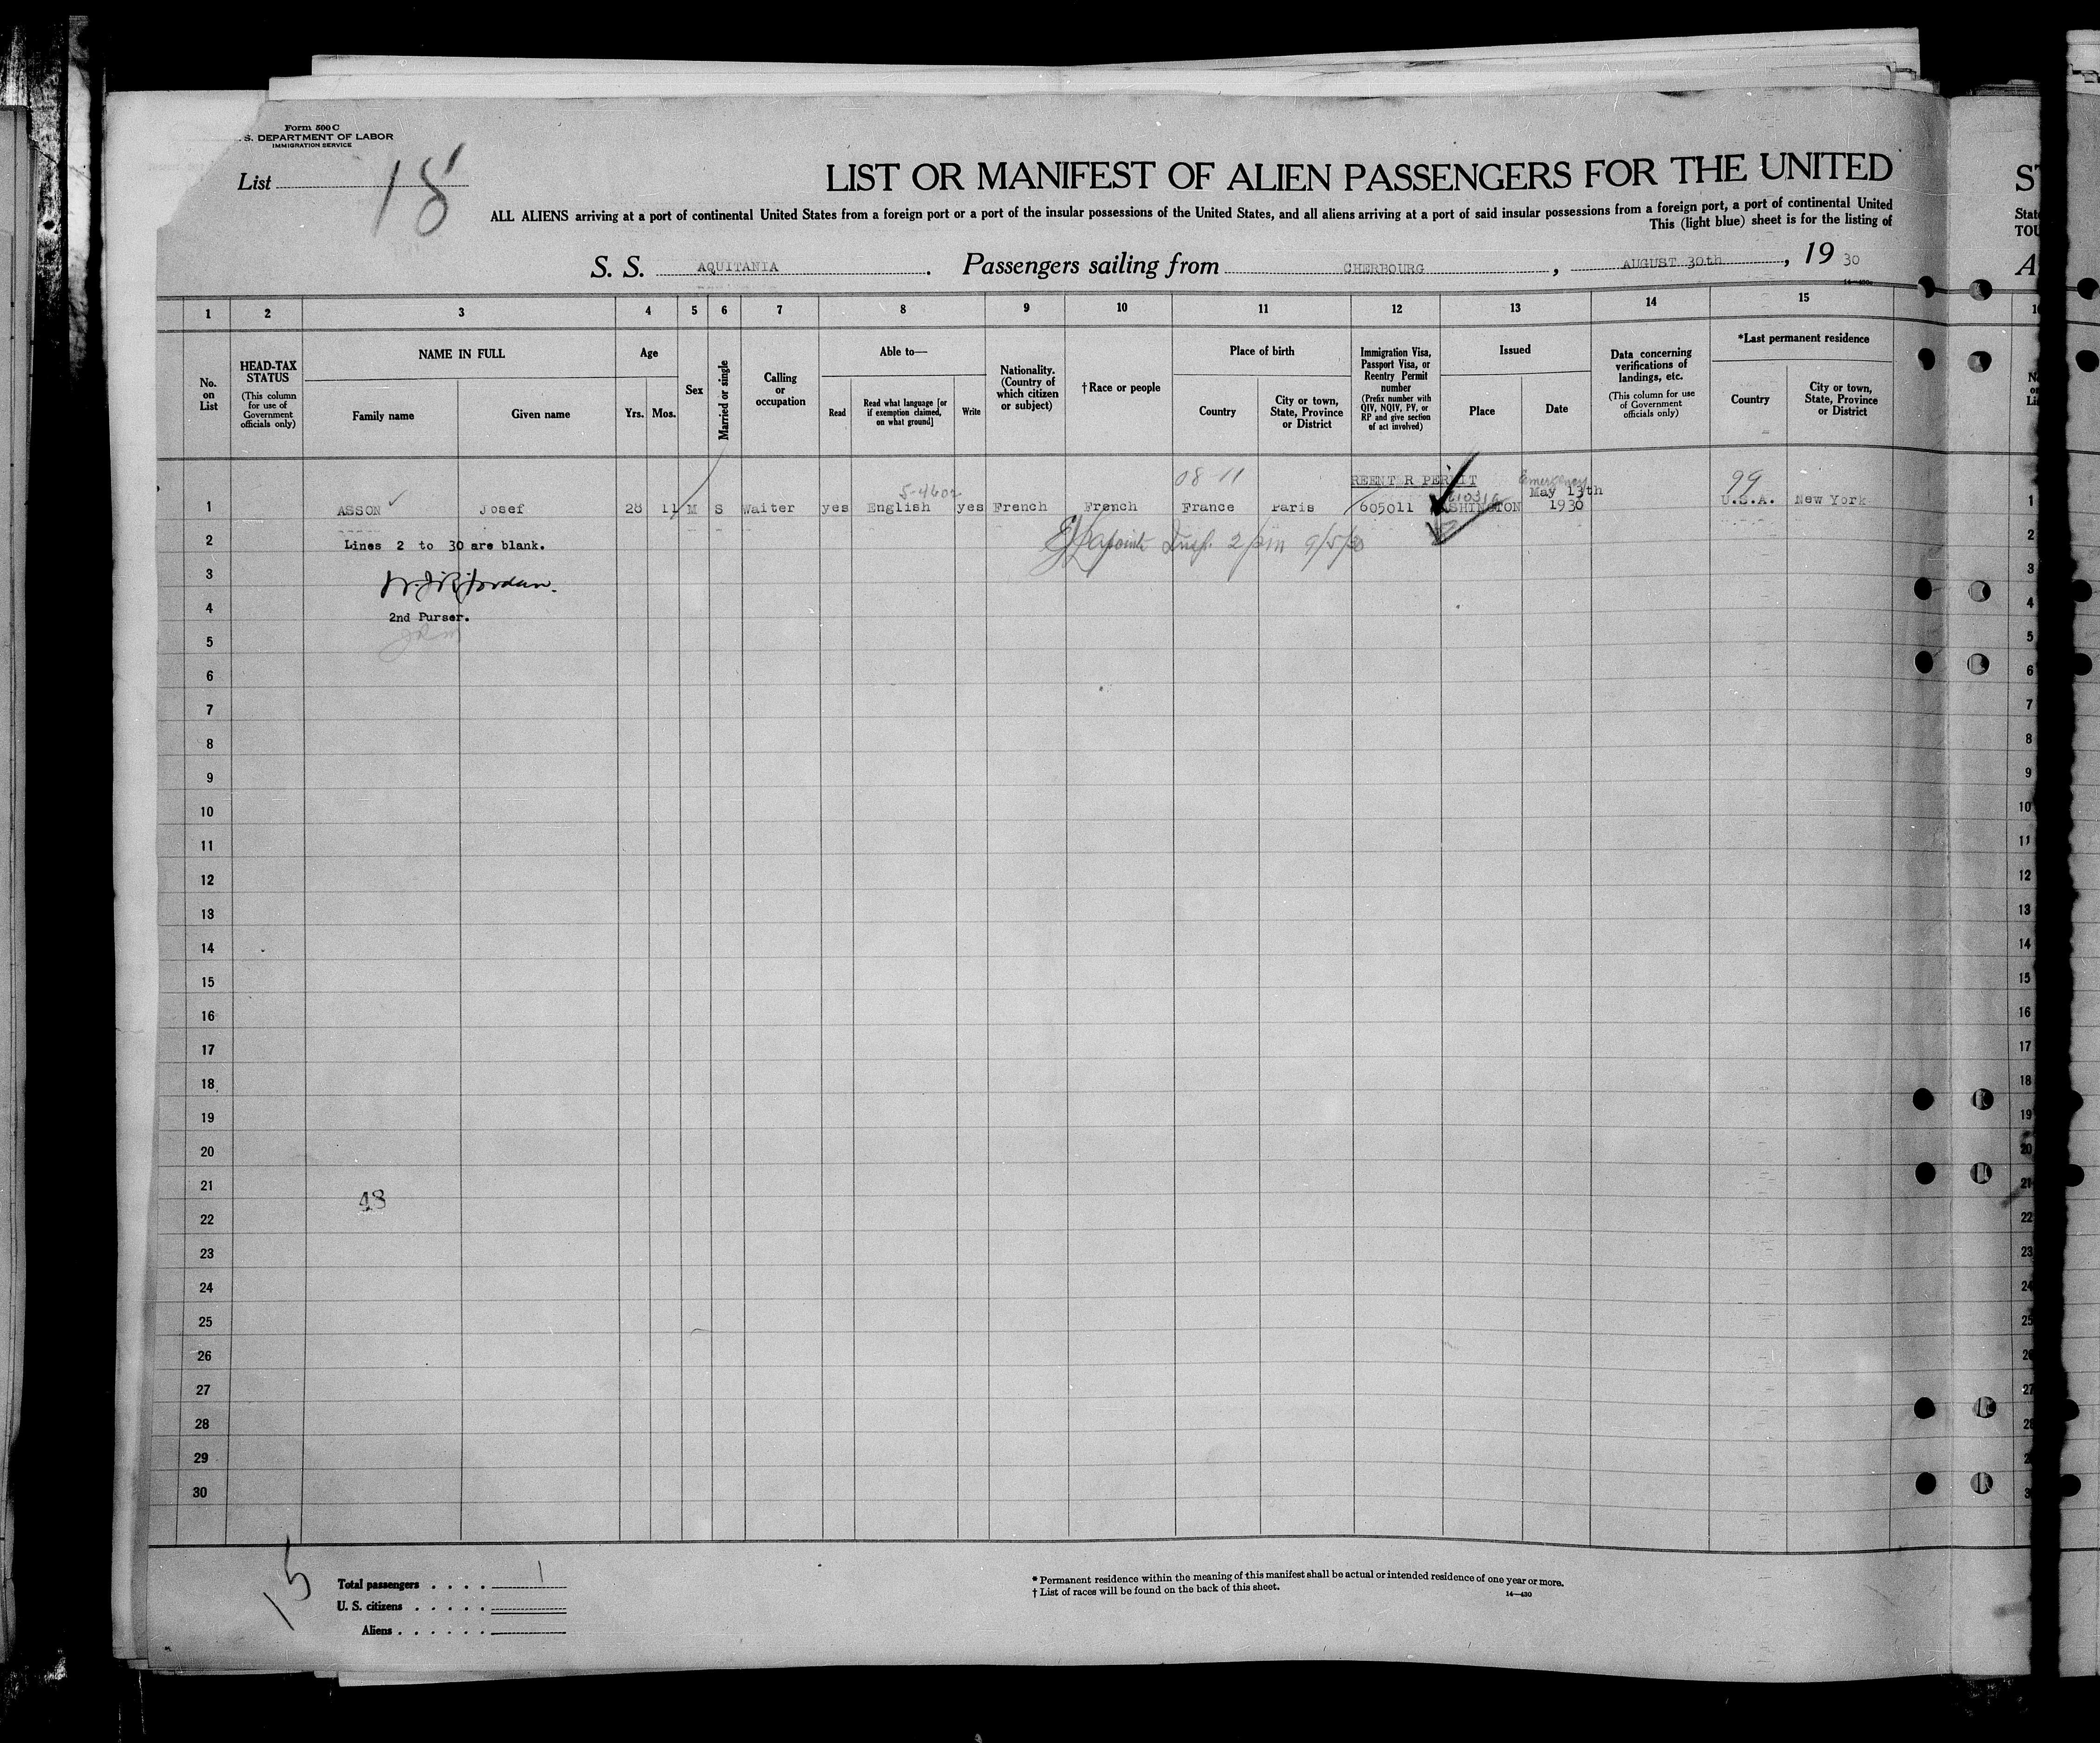 Form 500 C
S. DEPARTMENT OF LABOR
IMMIGRATION SERVICE
List 18
LIST OR MANIFEST OF ALIEN PASSENGERS FOR THE UNITED
ALL ALIENS arriving at a port of continental United States from a foreign port or a port of the insular possessions of the United States, and all aliens arriving at a port of said insular possessions from a foreign port, a port of continental United
This (light blue) sheet is for the listing of
S. S. AQUITANIA . Passengers sailing from CHERBOURG , AUGUST 30th , 19 30
1 2 3 4 5 6 7 8 9 10 11 12 13 14 15
No. on List
HEAD-TAX STATUS (This column for use of Government officials only)
NAME IN FULL
Family name Given name
Age
Yrs. Mos.
Sex
Married or single
Calling or occupation
Able to—
Read Read what language [or if exemption claimed, on what ground] Write
Nationality. (Country of which citizen or subject)
†Race or people
Place of birth
Country City or town, State, Province or District
Immigration Visa, Passport Visa, or Reentry Permit number (Prefix number with QIV, NQIV, PV, or RP and give section of act involved)
Issued
Place Date
Data concerning verifications of landings, etc. (This column for use of Government officials only)
*Last permanent residence
Country City or town, State, Province or District
08 11 REENT R PERMIT Emergency 99
5-4602 May 13th
1 ASSON Josef 28 11 M S Waiter yes English yes French French France Paris 605011 ASHINGTON 1930 U.S.A. New York 1
2 Lines 2 to 30 are blank. Insp. 2/pm 9/5/30 2
3 3
4 2nd Purser. 4
5 5
6 6
7 7
8 8
9 9
10 10
11 11
12 12
13 13
14 14
15 15
16 16
17 17
18 18
19 19
20 20
21 48 21
22 22
23 23
24 24
25 25
26 26
27 27
28 28
29 2
30 3
15
Total passengers . . . . 1
U. S. citizens . . . . .
Aliens . . . . . .
* Permanent residence within the meaning of this manifest shall be actual or intended residence of one year or more.
† List of races will be found on the back of this sheet.
14—430